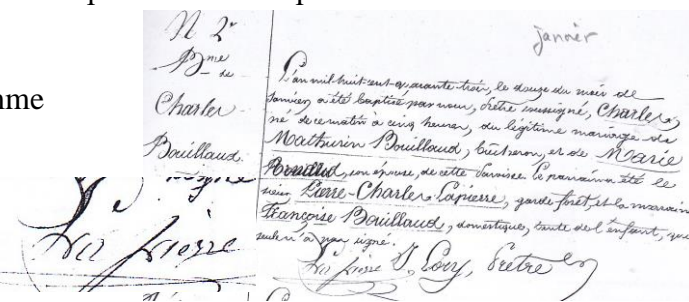 N 2e
janvier
Bme
de
Charles
Bouillaud
L'an mil huit cent quarante trois, le douze du mois de
Janvier, a été baptisé par nous, Prêtre soussigné, Charles,
né de ce matin à cinq heures, du légitime mariage de
Mathurin Bouillaud, bûcheron, et de Marie
son épouse, de cette Paroisse. Le parrain a été le
sieur Pierre-Charles Lapierre, garde forêt, et la marraine
Françoise Bouillaud, domestique, tante de l'enfant, qui
seule n'a pas signé.
La pierre J, Prêtre
La pierre
mme